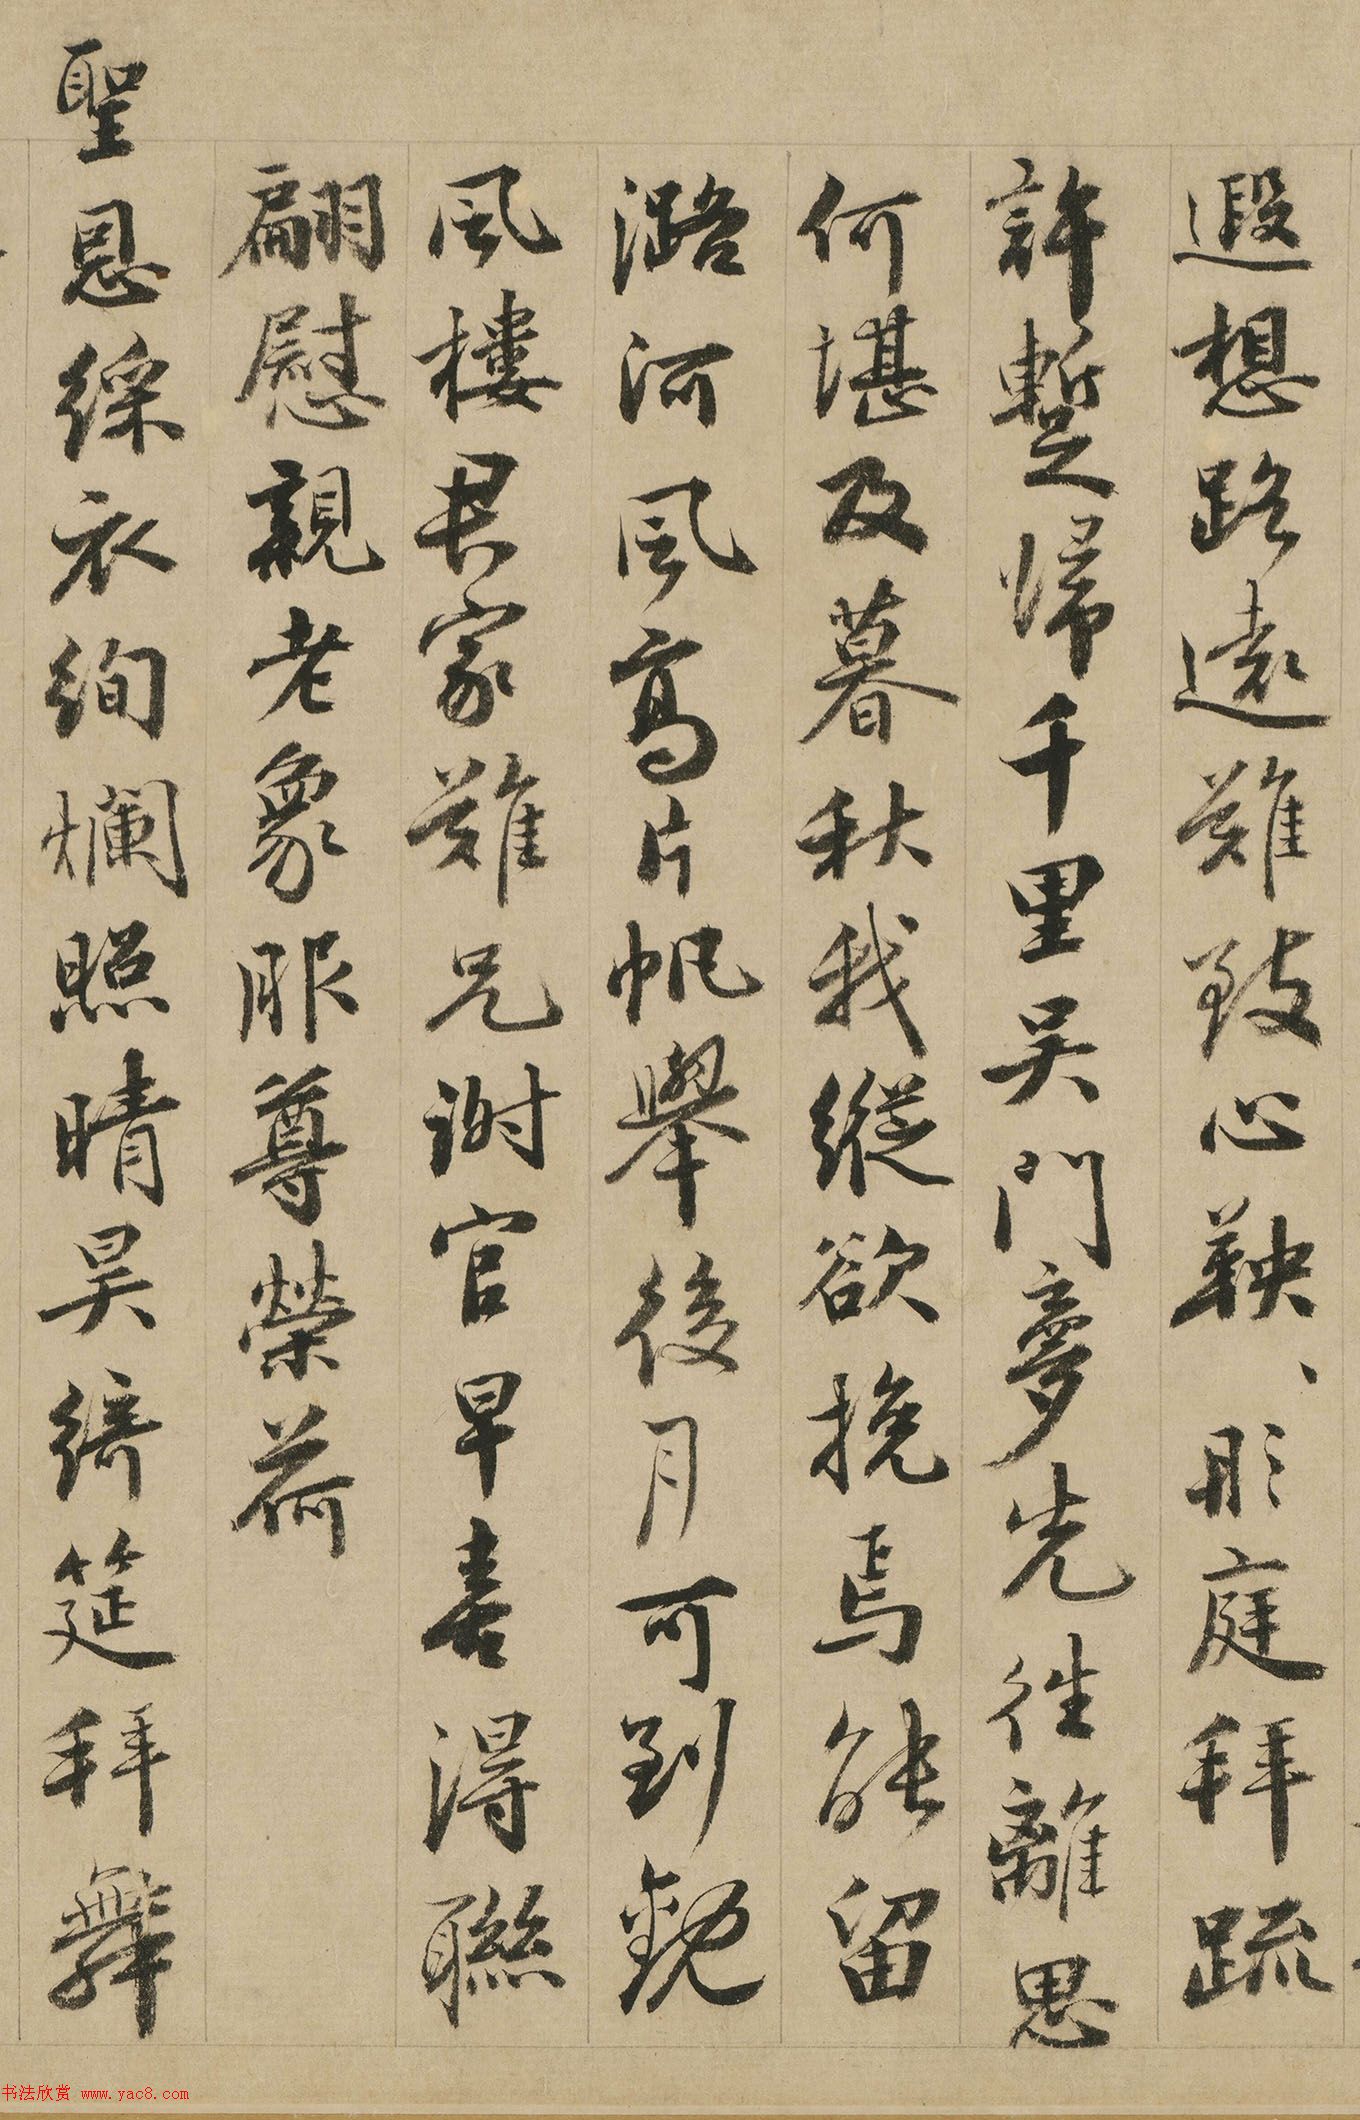 遐想路遠難致心鞅、彤庭拜疏
許蹔歸千里吳門夢先往離思
何堪及暮秋我縱欲挽焉能留
潞河風高片帆舉後月可到觀
風樓君家難兄謝官早喜得聯
翩慰親老象服尊榮荷
聖恩綵衣絢爛照晴昊綺筵拜舞
书法欣赏 www.yac8.com